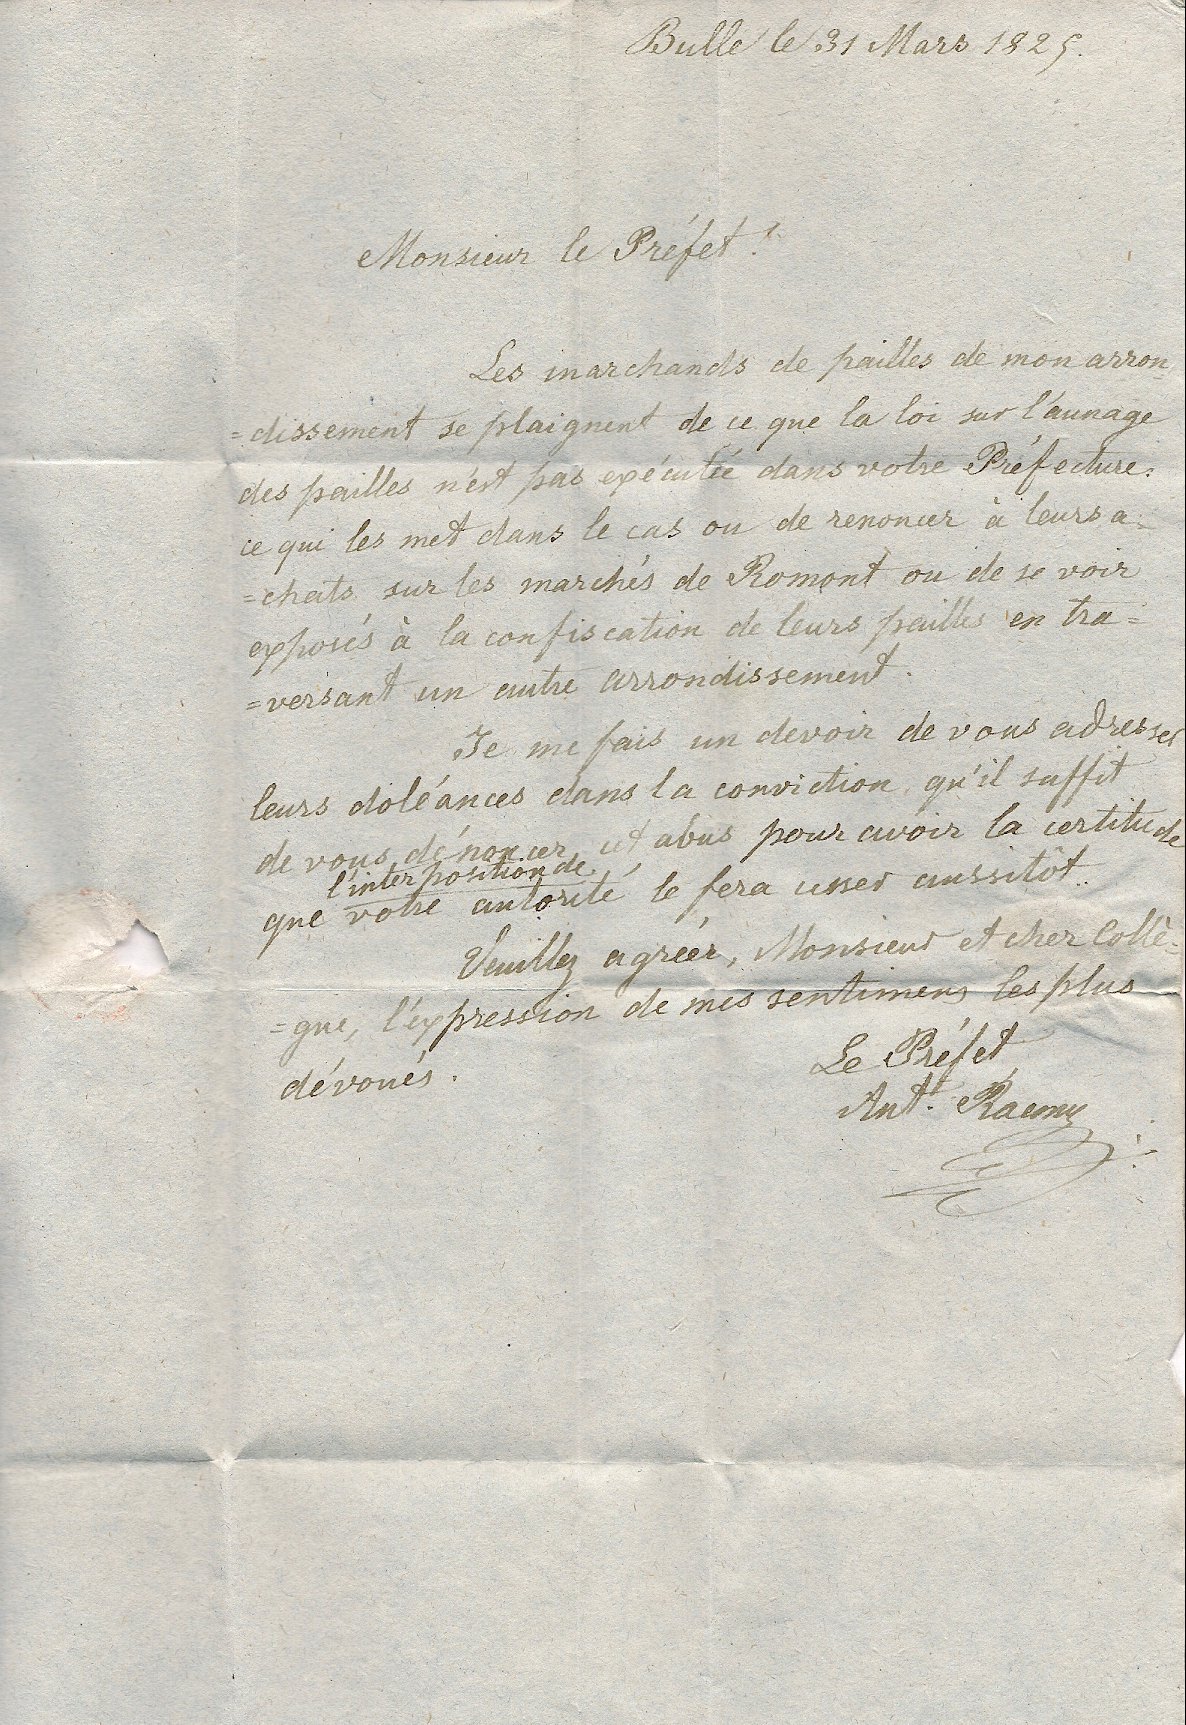 Bulle le 31 Mars 1825.
Monsieur le Préfet !
Les marchands de pailles de mon arron=
=dissement se plaignent de ce que la loi sur l'aunage
des pailles n'est pas exécutée dans votre Préfecture:
ce qui les met dans le cas ou de renoncer à leurs a=
=chats sur les marchés de Romont ou de se voir
exposés à la confiscation de leurs pailles en tra=
=versant un autre arrondissement.
Je me fais un devoir de vous adresser
leurs doléances dans la conviction, qu'il suffit
de vous dénoncer cet abus pour avoir la certitude
l'interposition de
que votre autorité le fera cesser aussitôt.
Veuillez agréer, Monsieur et cher Collè=
=gue, l'expression de mes sentimens les plus
dévoués.
Le Préfet
Ant. Raemy